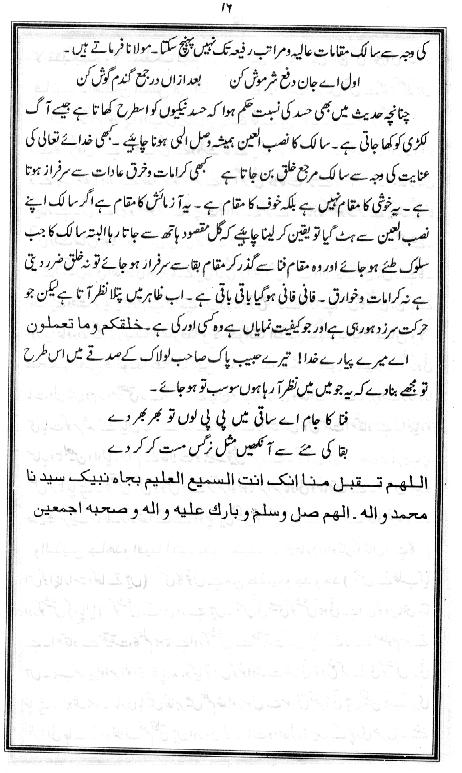 ۱۶
کی وجہ سے سالک مقامات عالیہ و مراتب رفیعہ تک نہیں پہنچ سکتا۔ مولانا فرماتے ہیں۔
اول اے جان دفع شر موش کن بعد ازاں در جمع گندم گوش کن
چنانچہ حدیث میں بھی حسد کی نسبت حکم ہوا کہ حسد نیکیوں کو اسطرح کھاتا ہے جیسے آگ
لکڑی کو کھا جاتی ہے۔ سالک کا نصب العین ہمیشہ وصل الٰہی ہونا چاہیئے۔ کبھی خدائے تعالی کی
عنایت کی وجہ سے سالک مرجع خلق بن جاتا ہے کبھی کرامات و خرق عادات سے سرفراز ہوتا
ہے۔ یہ خوشی کا مقام نہیں ہے بلکہ خوف کا مقام ہے۔ یہ آزمائش کا مقام ہے اگر سالک اپنے
نصب العین سے ہٹ گیا تو یقین کر لینا چاہیئے کہ گل مقصود ہاتھ سے جاتا رہا البتہ سالک کا جب
سلوک طئے ہو جائے اور وہ مقام فنا سے گذر کر مقام بقا سے سرفراز ہو جائے تو نہ خلق ضرر دیتی
ہے نہ کرامات و خوارق۔ فانی فانی ہو گیا باقی باقی ہے۔ اب ظاہر میں پتلا نظر آتا ہے لیکن جو
حرکت سرزد ہو رہی ہے اور جو کیفیت نمایاں ہے وہ کسی اور کی ہے۔ خلقکم وما تعملون
اے میرے پیارے خدا! تیرے حبیب پاک صاحب لولاک کے صدقے میں اس طرح
تو مجھے بنا دے کہ یہ جو میں میں نظر آرہا ہوں سو سب تو ہو جائے۔
فنا کا جام اے ساقی میں پی پی لوں تو بھر بھر دے
بقا کی مئے سے آنکھیں مثل نرگس مست کر کر دے
اللهم تقبل منا انک انت السمیع العلیم بجاه نبیک سیدنا
محمد و اله۔ الهم صل وسلم و بارك علیه و اله و صحبه اجمعین